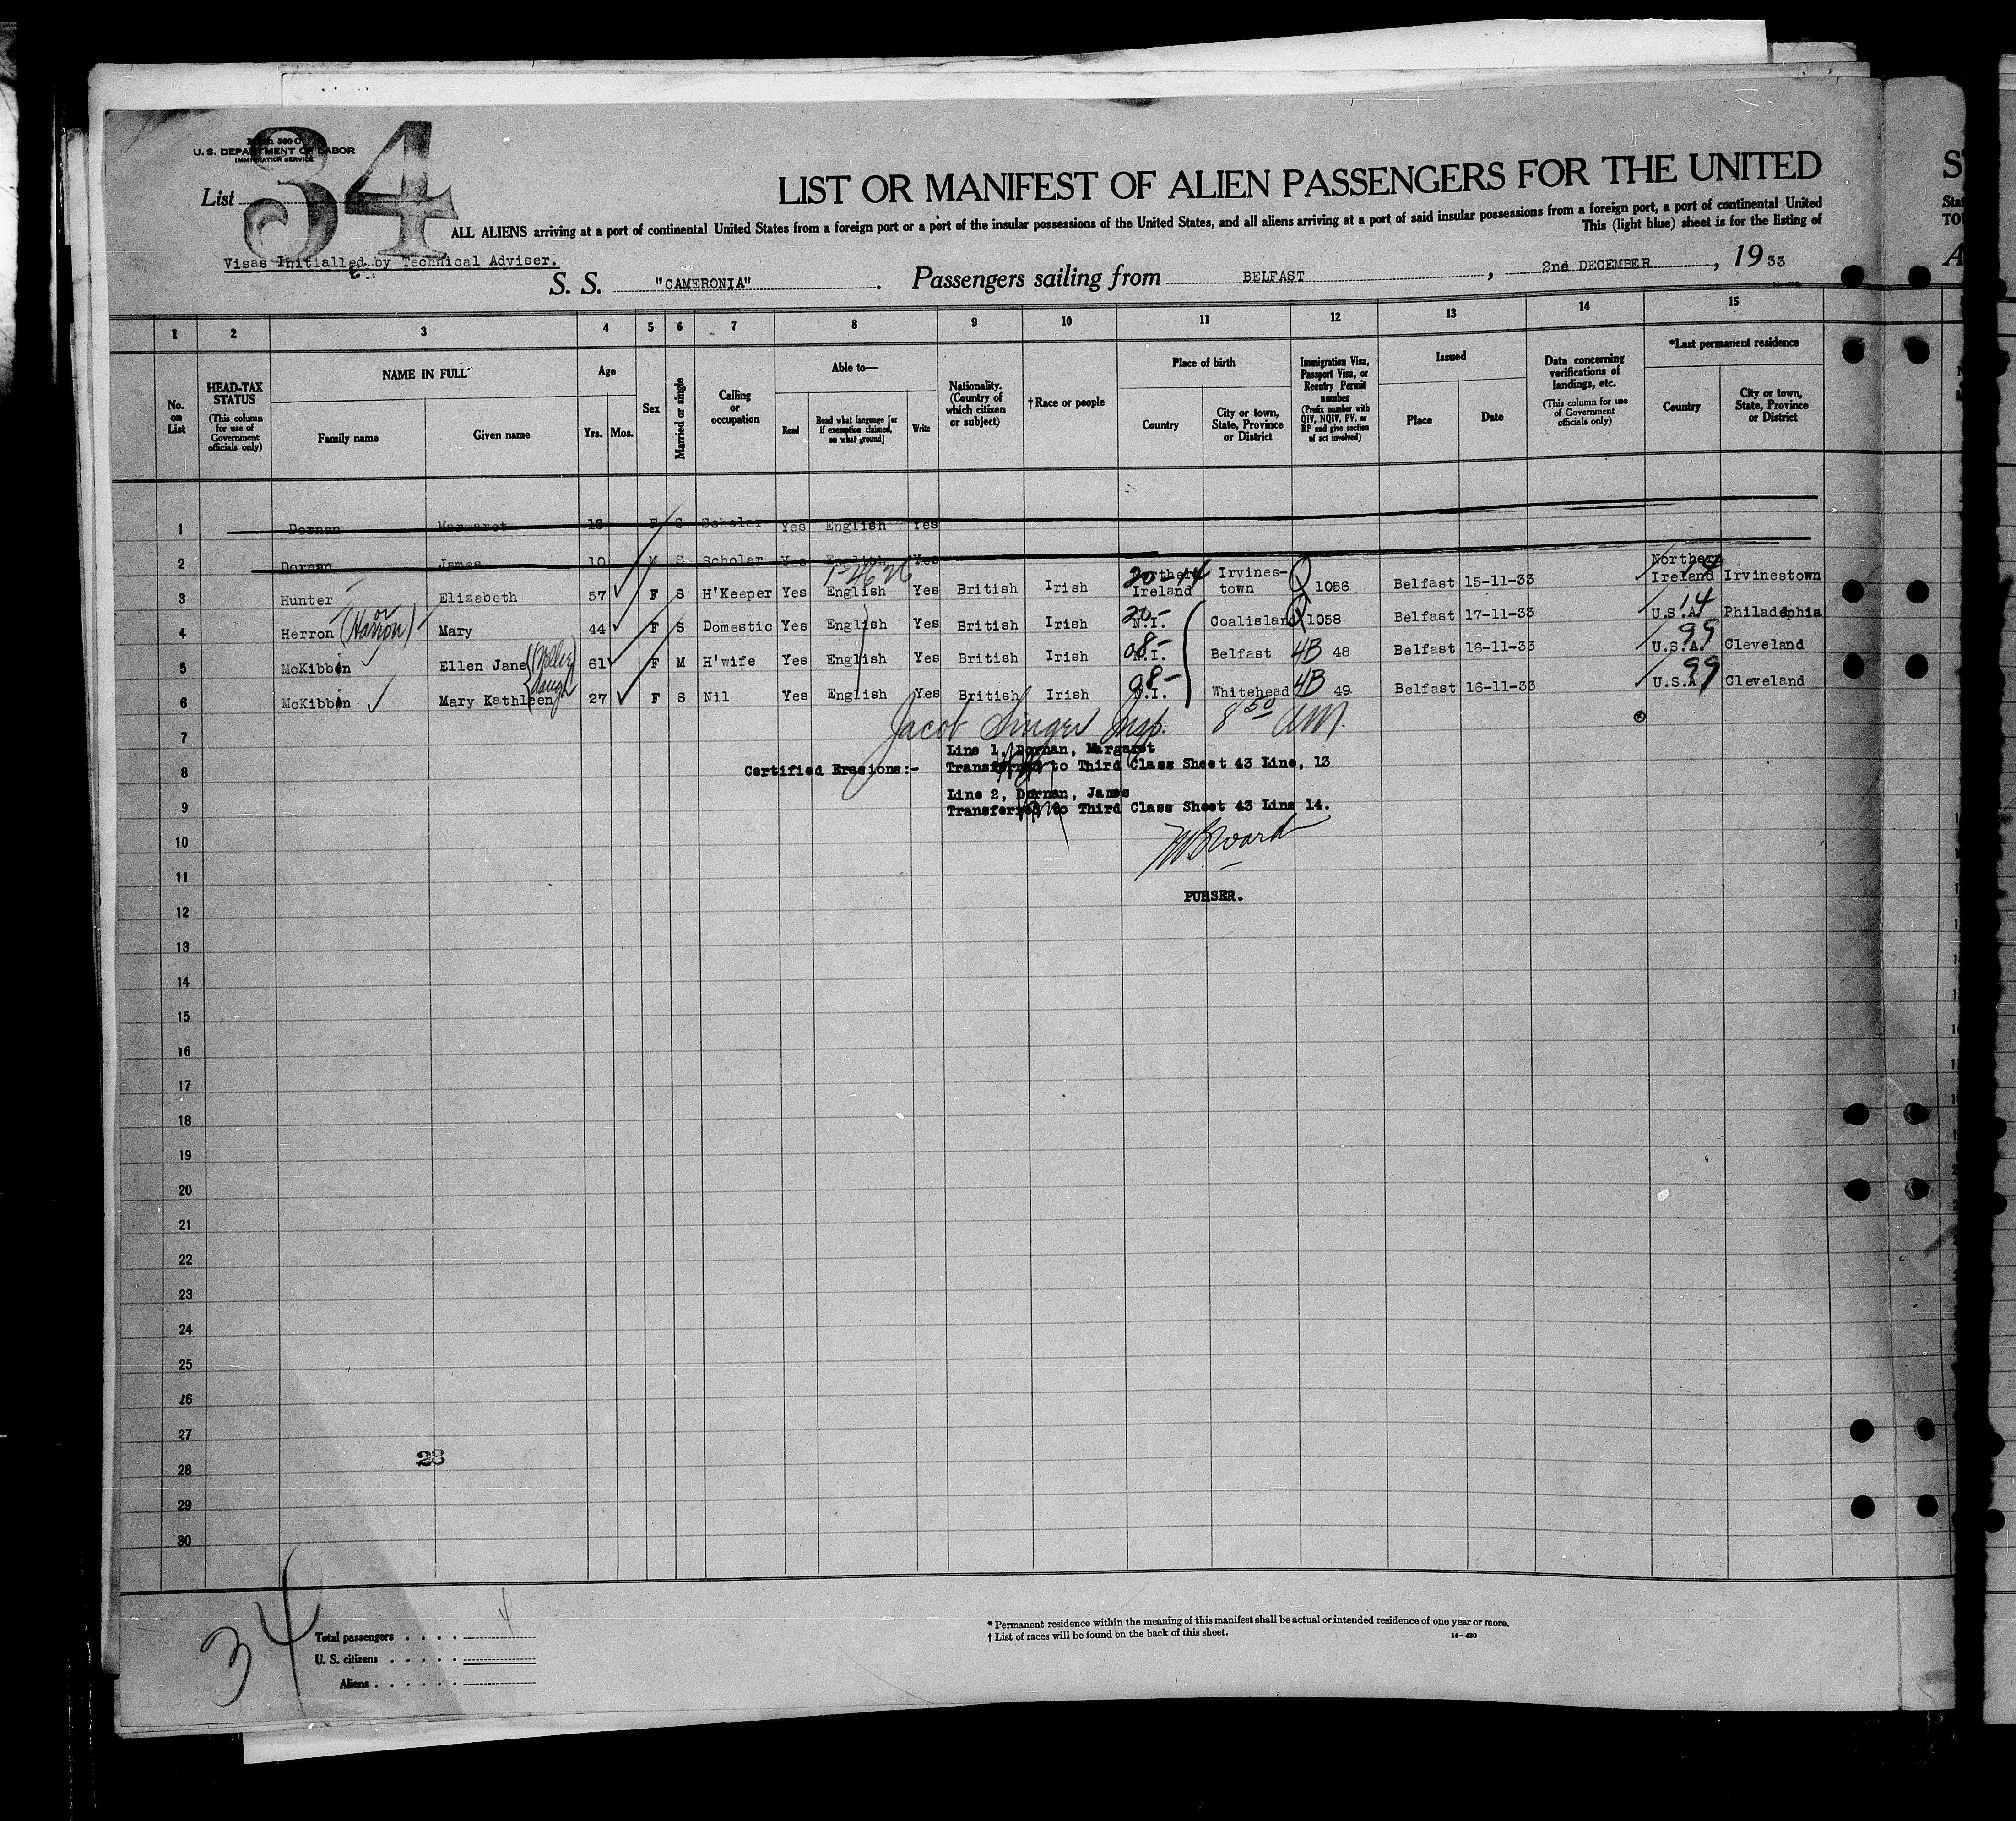 Form 500 C
U. S. DEPARTMENT OF LABOR
IMMIGRATION SERVICE
List 34
LIST OR MANIFEST OF ALIEN PASSENGERS FOR THE UNITED
ALL ALIENS arriving at a port of continental United States from a foreign port or a port of the insular possessions of the United States, and all aliens arriving at a port of said insular possessions from a foreign port, a port of continental United
This (light blue) sheet is for the listing of
Visas Initialled by Technical Adviser.
S. S. "CAMERONIA". Passengers sailing from BELFAST, 2nd DECEMBER, 19 33
1 2 3 4 5 6 7 8 9 10 11 12 13 14 15
No. on List
HEAD-TAX STATUS (This column for use of Government officials only)
NAME IN FULL
Family name Given name
Age
Yrs. Mos.
Sex
Married or single
Calling or occupation
Able to—
Read
Read what language [or if exemption claimed, on what ground]
Write
Nationality. (Country of which citizen or subject)
†Race or people
Place of birth
Country
City or town, State, Province or District
Immigration Visa, Passport Visa, or Reentry Permit number (Prefix number with QIV, NQIV, PV, or RP and give section of act involved)
Issued
Place Date
Data concerning verifications of landings, etc. (This column for use of Government officials only)
*Last permanent residence
Country
City or town, State, Province or District
1 Dornan Margaret 13 F S Scholar Yes English Yes
2 Dornan James 10 M S Scholar Yes English Yes
3 Hunter Elizabeth 57 F S H'Keeper Yes English Yes British Irish Northern Ireland 20-14 Irvines-town Q 1056 Belfast 15-11-33 Northern Ireland 14 Irvinestown
4 Herron (or Harron) Mary 44 F S Domestic Yes English Yes British Irish N.I. 20- Coalisland Q 1058 Belfast 17-11-33 U.S.A. 14 Philadephia
5 McKibbin Ellen Jane 61 F M H'wife Yes English Yes British Irish N.I. 08- Belfast 4B 48 Belfast 16-11-33 U.S.A. 99 Cleveland
6 McKibbin Mary Kathleen 27 F S Nil Yes English Yes British Irish N.I. 08- Whitehead 4B 49 Belfast 16-11-33 U.S.A. 99 Cleveland
Jacob Singer Insp. 8 50 AM.
7
Line 1, Dornan, Margaret
8 Certified Erasions:- Transferred to Third Class Sheet 43 Line, 13
Line 2, Dornan, James
9 Transferred to Third Class Sheet 43 Line 14.
10
11
PURSER.
12
13
14
15
16
17
18
19
20
21
22
23
24
25
26
27
23
28
29
30
34
Total passengers . . . .
U. S. citizens . . . . .
Aliens . . . . . .
* Permanent residence within the meaning of this manifest shall be actual or intended residence of one year or more.
† List of races will be found on the back of this sheet.
14—430